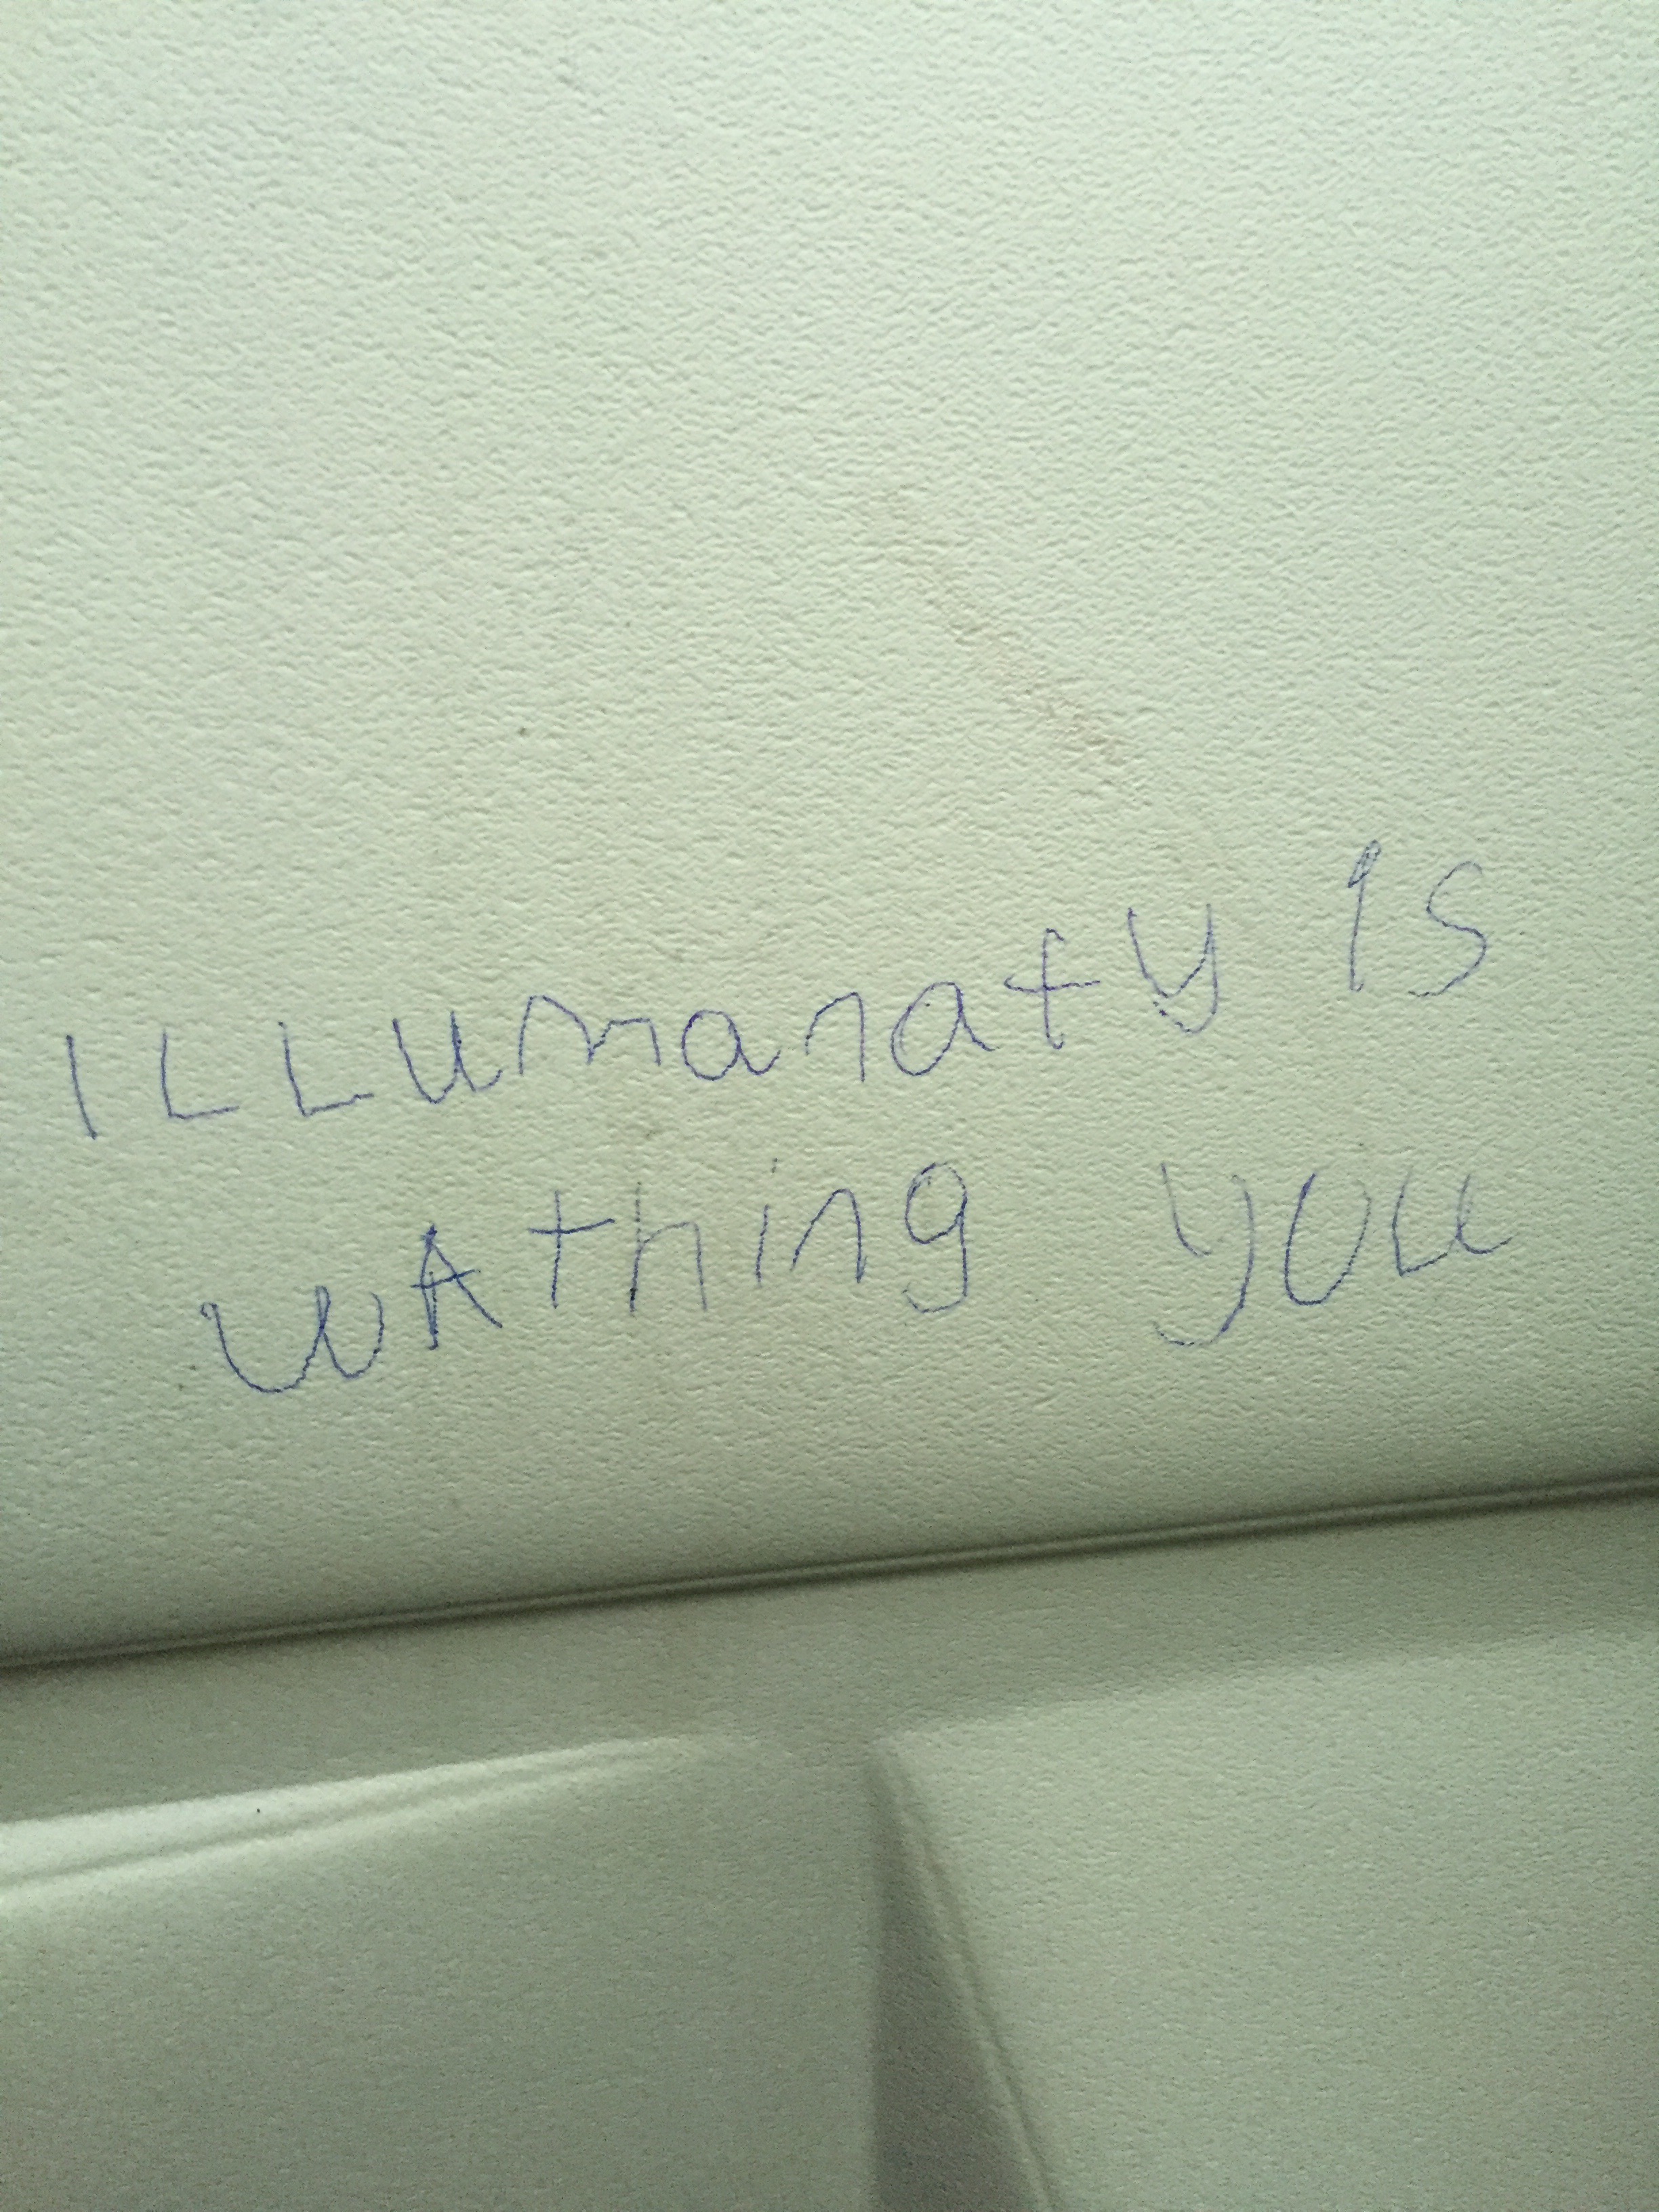 ILLUmanaty is
wAthing you